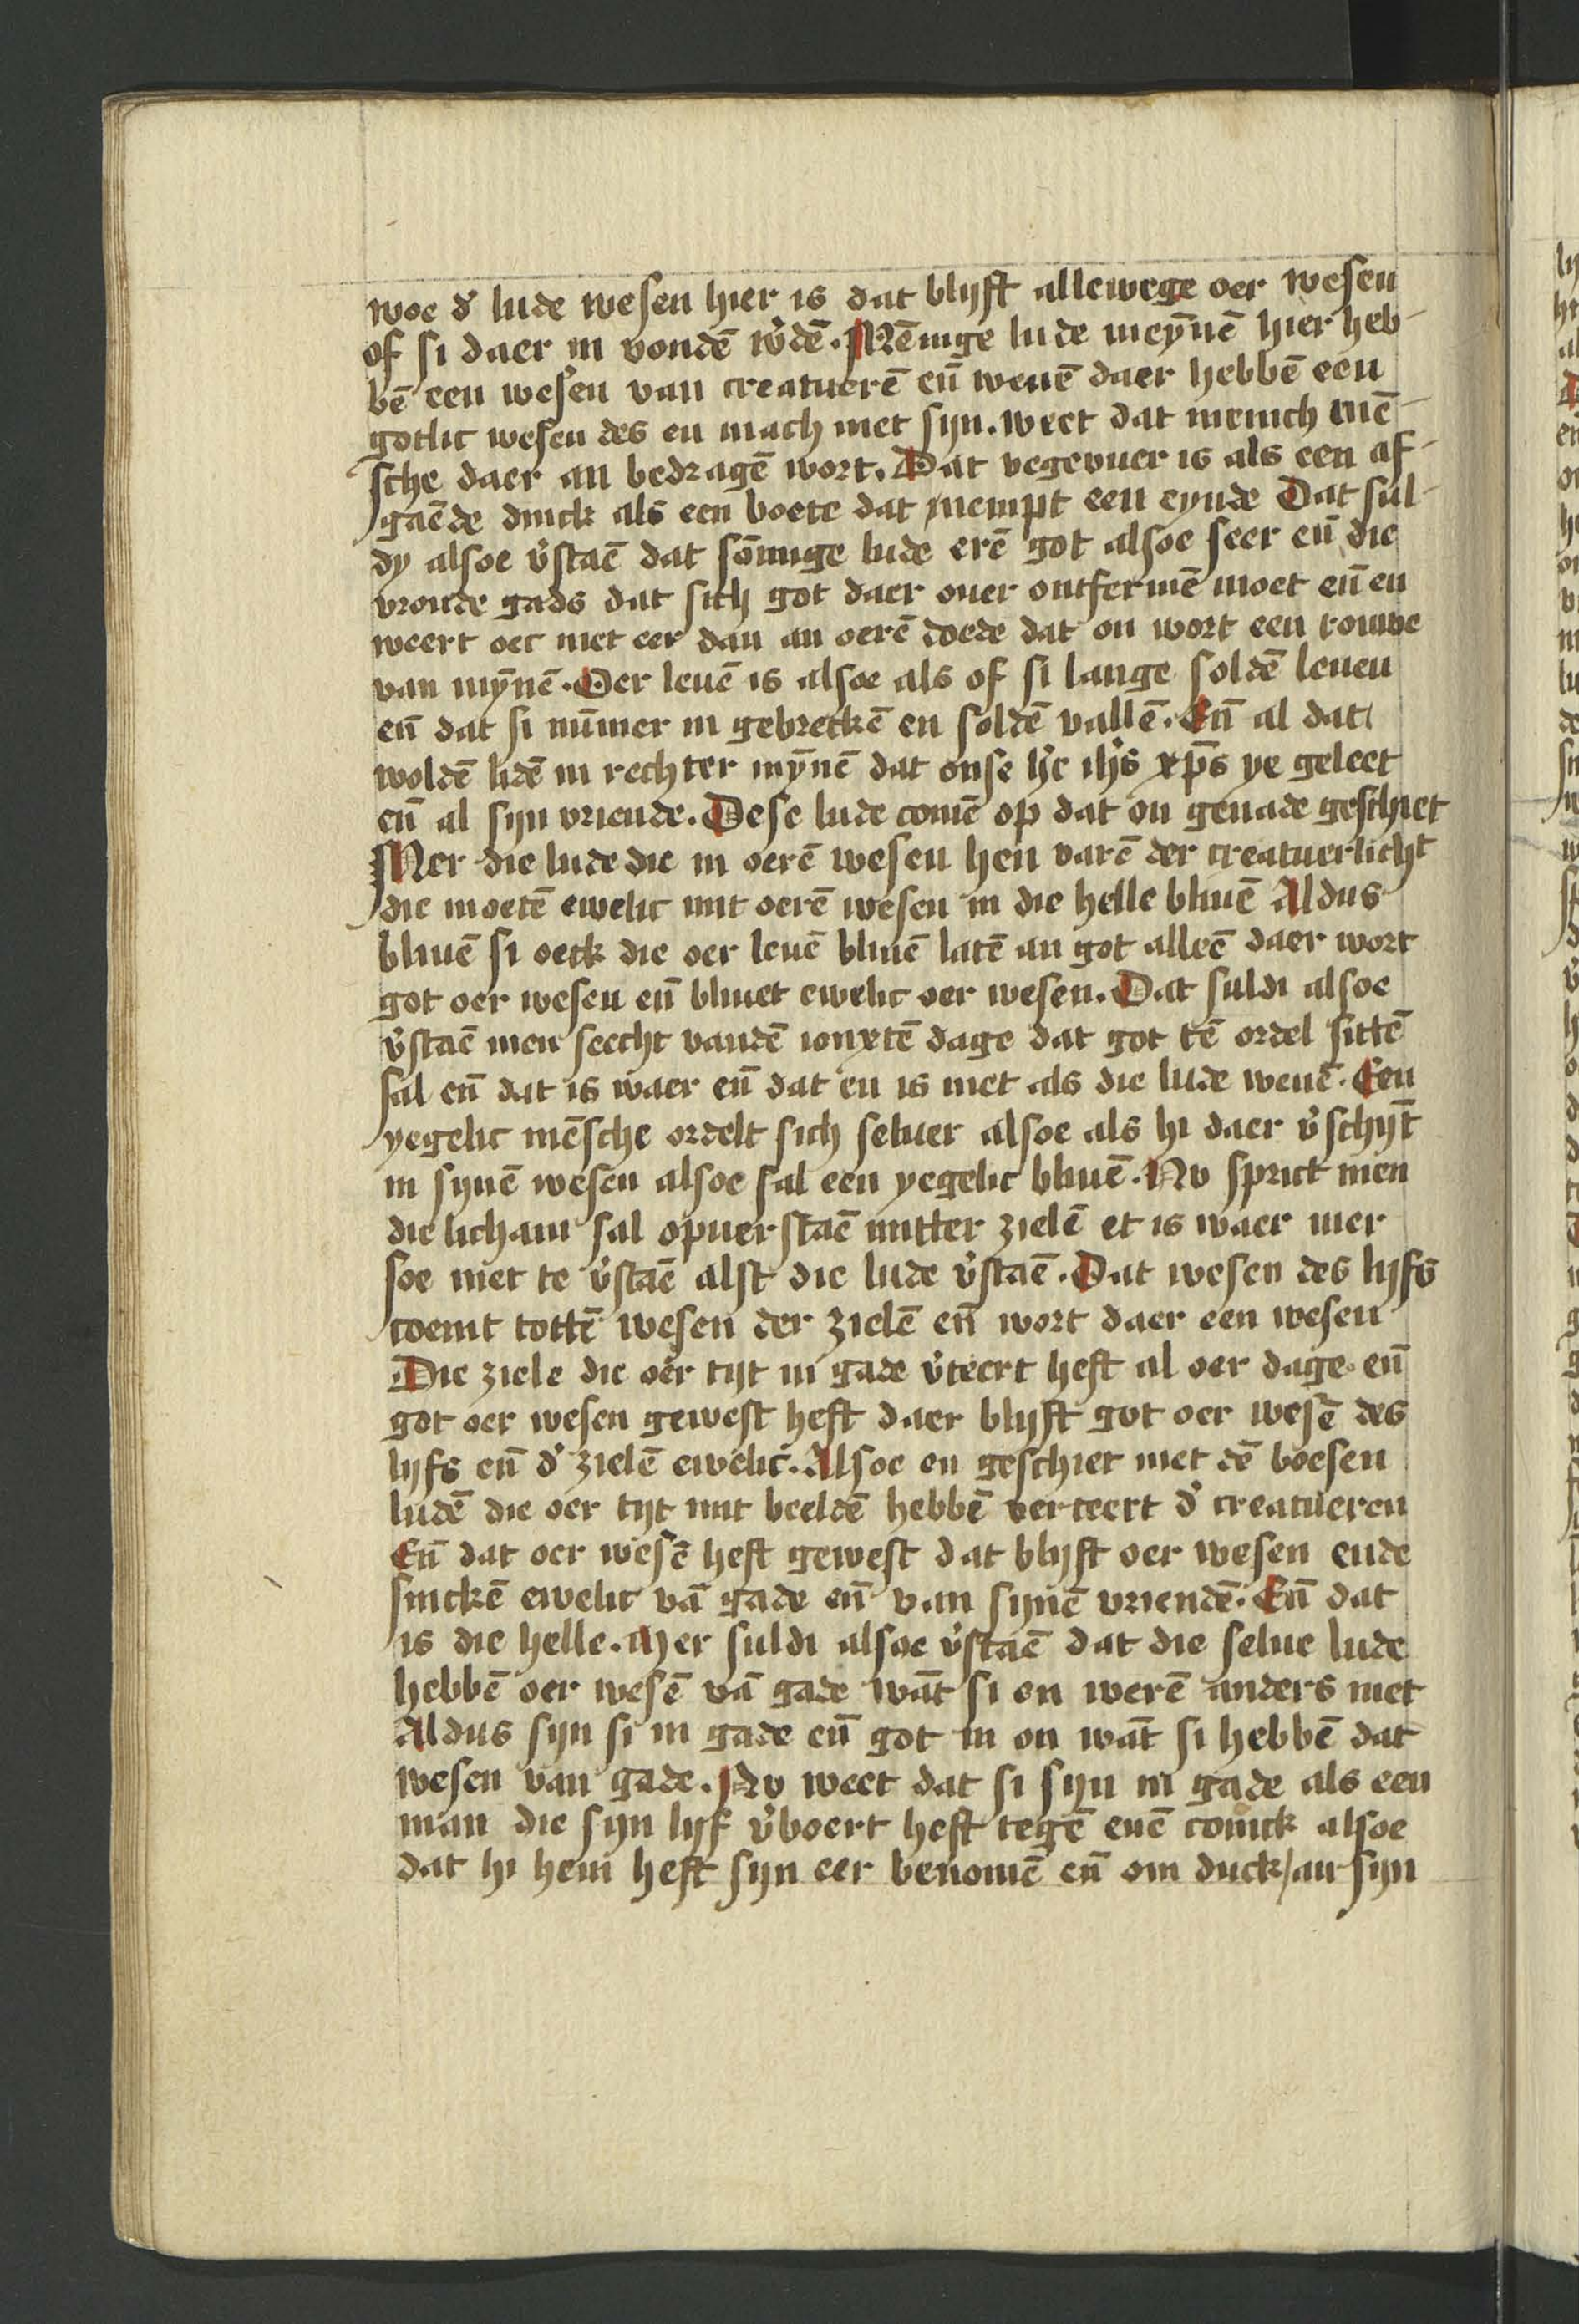 woe d' lude wesen hier is dat blijft allewege oer wesen
of si daer in vondē w'dē. Mēnige lude meȳnē hier heb-
bē een wesen van creatuerē eñ wenē daer hebbē een
gotlic wesen des en mach niet sijn. weet dat menich mē-
sche daer an bedragē wort. Dat vegevuer is als een af-
gaēde dinck als een boete dat nempt een eynde Dat sul-
dy alsoe v'staē dat sōmige lude erē got alsoe seer eñ die
vronde gads dat sich got daer ouer ontfermē moet eñ en
weert oec niet eer dan an oerē doede dat on wort een rouwe
van mȳnē. Oer leuē is alsoe als of si lange soldē leuen
eñ dat si nūmer in gebreckē en soldē vallē. Eñ al dat
woldē lidē in rechter mȳnē dat onse h'e ih's xp̄s ye geleet
eñ al sijn vriende. Dese lude comē op dat on genade geschiet
Mer die lude die in oerē wesen hen varē der creatuerlicht
die moetē ewelic mit oerē wesen in die helle bliuē Aldus
bliuē si oeck die oer leuē bliuē latē an got alleē daer wort
got oer wesen eñ bliuet ewelic oer wesen. Dat suldi alsoe
v'staē men seecht vandē ionxtē dage dat got tē ordel sittē
sal eñ dat is waer eñ dat en is niet als die lude wenē. Een
yegelic mēsche ordelt sich seluer alsoe als hi daer v'schijt
in sijnē wesen alsoe sal een yegelic bliuē. Nv sprict men
die licham sal opuerstaē mitter zielē et is waer mer
soe niet te v'staē alst die lude v'staē. Dat wesen des lijfs
coemt tottē wesen der zielē eñ wort daer een wesen
Die ziele die oer tijt in gade v'teert heft al oer dage eñ
got oer wesen gewest heft daer blijft got oer wesē des
lijfs eñ d' zielē ewelic. Alsoe en geschiet niet dē boesen
ludē die oer tijt mit beeldē hebbē verteert d' creatueren
Eñ dat oer wesē heft gewest dat blijft oer wesen ende
sinckē ewelic vā gade eñ van sijnē vriendē. Eñ dat
is die helle. Mer suldi alsoe v'staē dat die selue lude
hebbē oer wesē vā gade wāt si en werē anders niet
Aldus sijn si in gade eñ got in on wāt si hebbē dat
wesen van gade. Nv weet dat si sijn in gade als een
man die sijn lijf v'boert heft tegē enē coninck alsoe
dat hi hem heft sijn eer benomē eñ om duck/an sijn